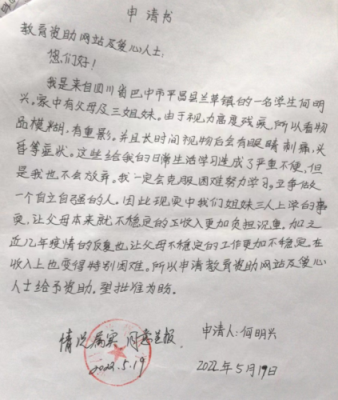 申请书
教育资助网站及爱心人士:
您们好!
我是来自四川省巴中市平昌县兰草镇的一名学生何明
兴。家中有父母及三姐妹。由于视力高度残疾,所以看物
品模糊,有重影。并且长时间视物后会有眼睛刺痛,头
昏等症状。这些给我的日常生活学习造成了严重不便,但
是我也不会放弃。我一定会克服困难努力学习。立争做
一个自立自强的人。因此现实中我们姐妹三人上学的事
实,让父母本来就不稳定的工收入更加负担沉重,加之
近几年疫情的反复也让父母不稳定的工作更加不稳定。在
收入上也变得特别困难。所以申请教育资助网站及爱心
人士给予资助,望批准为盼。
情况属实,同意呈报
申请人:何明兴
2022.5.19
2022年5月19日